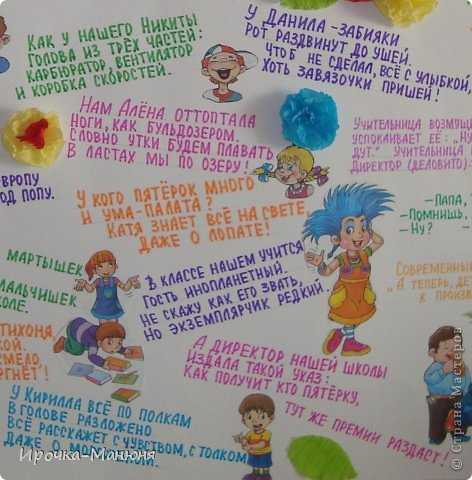 Как у нашего Никиты
голова из трёх частей:
карбюратор, вентилятор
и коробка скоростей.
У Данила-забияки
рот раздвинут до ушей.
Что б не сделал, всё с улыбкой,
хоть завязочки пришей!
Нам Алёна оттоптала
ноги, как бульдозером.
Словно утки будем плавать
в ластах мы по озеру!
Учительница возмущ
успокаивает её: „Ну
дут." Учительница
Директор (деловито):
Европу
од попу.
У кого пятёрок много
и ума-палата?
Катя знает всё на свете,
даже о лопате!
—Папа,
—Помнишь,
—Ну?
мартышек
альчишек
коле.
В классе нашем учится
гость инопланетный.
Не скажу как его звать,
но экземплярчик редкий.
Современный
„А теперь, дет
к произв
тихоня,
кой.
смело,
ргнёт!
А директор нашей школы
издала такой указ:
как получит кто пятёрку,
тут же премии раздаст!
У Кирилла всё по полкам
в голове разложено
Всё расскажет с чувством, с толком
даже о
Ирочка-Манюня
© Страна Мастеров